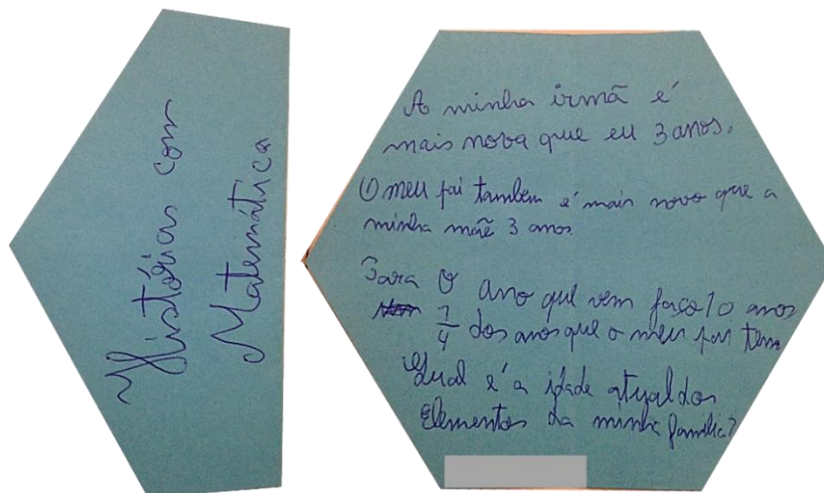 Histórias com
Matemática
A minha irmã é
mais nova que eu 3 anos.
O meu pai também é mais novo que a
minha mãe 3 anos.
Para o ano que vem faço 10 anos
1/4 dos anos que o meu pai tem
Qual é a idade atual dos
elementos da minha família?